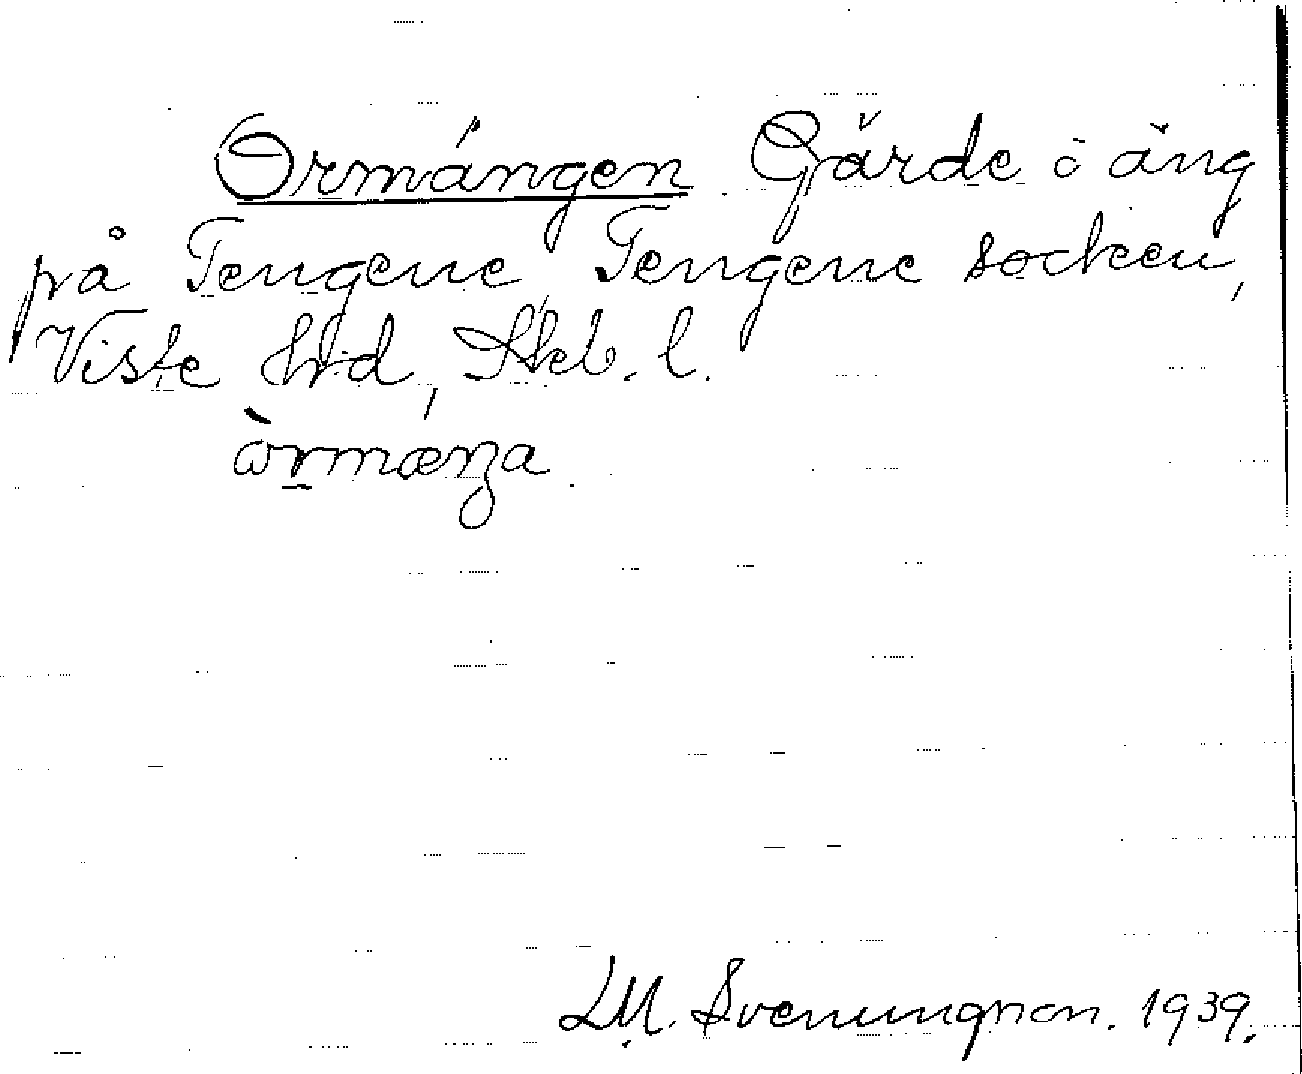 Ormängen Gärde o äng
på Tengene, Tengene socken,
Viste hd, Skb. l.
L M. Svenungsson. 1939.